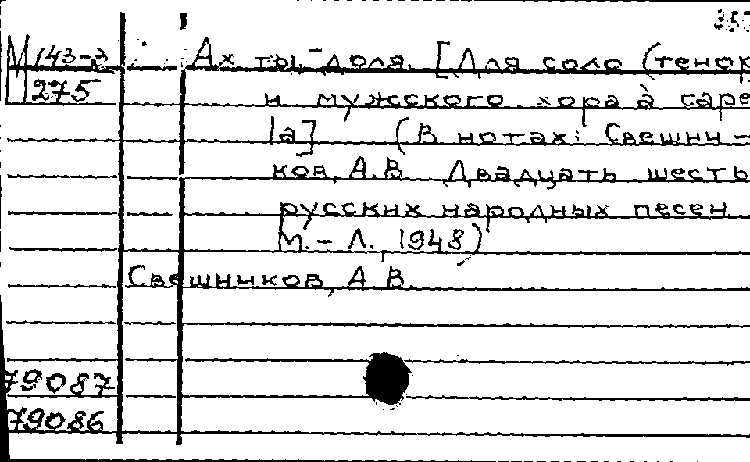 353
М 143-3 Ах ты, доля. [Для соло (тенор
275 и мужского хора à cape
la] (В нотах: Свешни-
ков, А.В. Двадцать шесть
русских народных песен
М.-Л., 1948)
Свешников, А.В.
79087
79086